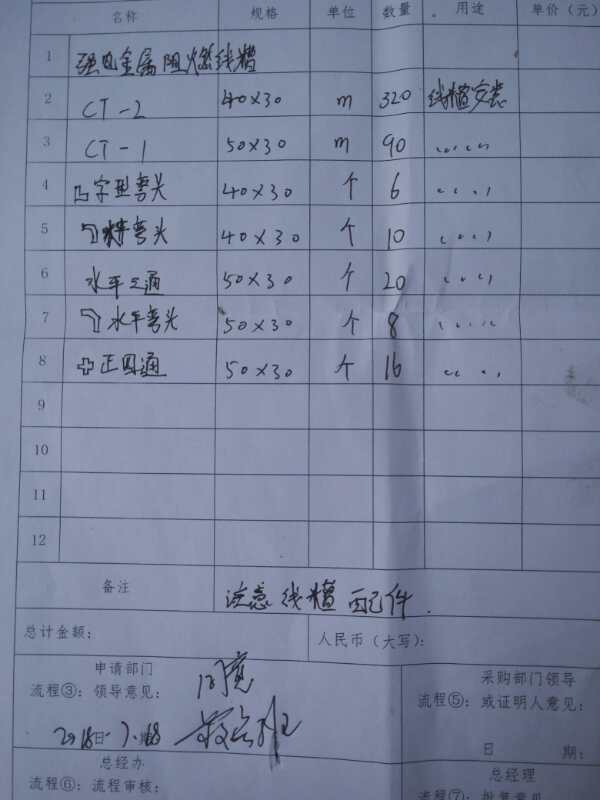 名称 规格 单位 数量 用途 单价（元）
1 强电金属阻燃线槽
2 CT-2 40×30 m 320 线槽安装
3 CT-1 50×30 m 90 〃
4 凸字型弯头 40×30 个 6 〃
5 弯头 40×30 个 10 〃
6 水平三通 50×30 个 20 〃
7 水平弯头 50×30 个 8 〃
8 正四通 50×30 个 16 〃
9
10
11
12
备注 注意线槽配件.
总计金额： 人民币（大写）：
申请部门 采购部门领导
流程③：领导意见： 流程⑤：或证明人意见：
日 期：
总经办 总经理
流程⑥：流程审核： 流程⑦：批复意见